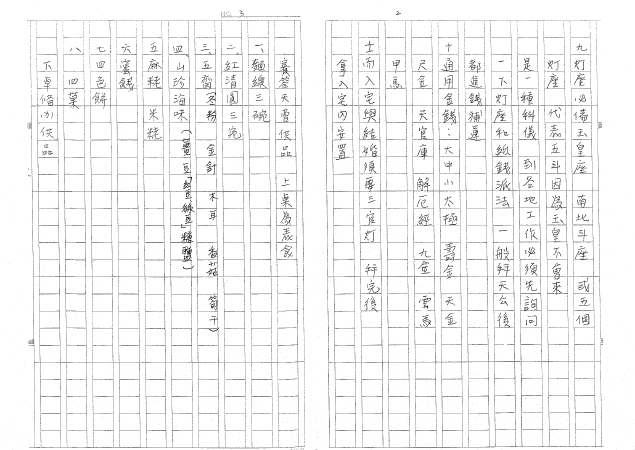 2
九灯座必備玉皇座 南北斗座 或五個
灯座 代表五斗因為玉皇不會來
是一種科儀 到各地工作必須先詢問
一下灯座和紙錢派法 一般拜天公後
都進錢補運
十通用金錢：大中小太極 壽金 天金
尺金 天官庫 解厄經 九金 雲馬
甲馬
士而入宅與結婚須要三官灯 拜完後
拿入宅內安置
NO 3
賽答天雪供品 上桌為素食
一、麵線三碗
二、紅清圓三碗
三、五齋(冬粉 金針 木耳 香菇 筍干)
四、山珍海味(薑豆「紅豆綠豆」糖鹽)
五麻粩 米粩
六蜜餞
七四色餅
八 四菓
下桌備以供品